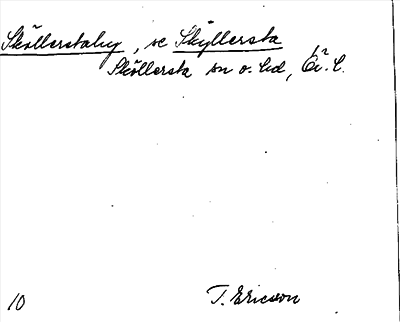 Sköllerstaby, se Skyllersta
Sköllersta sn o. hd, Ör. l.
10
T. Ericsson